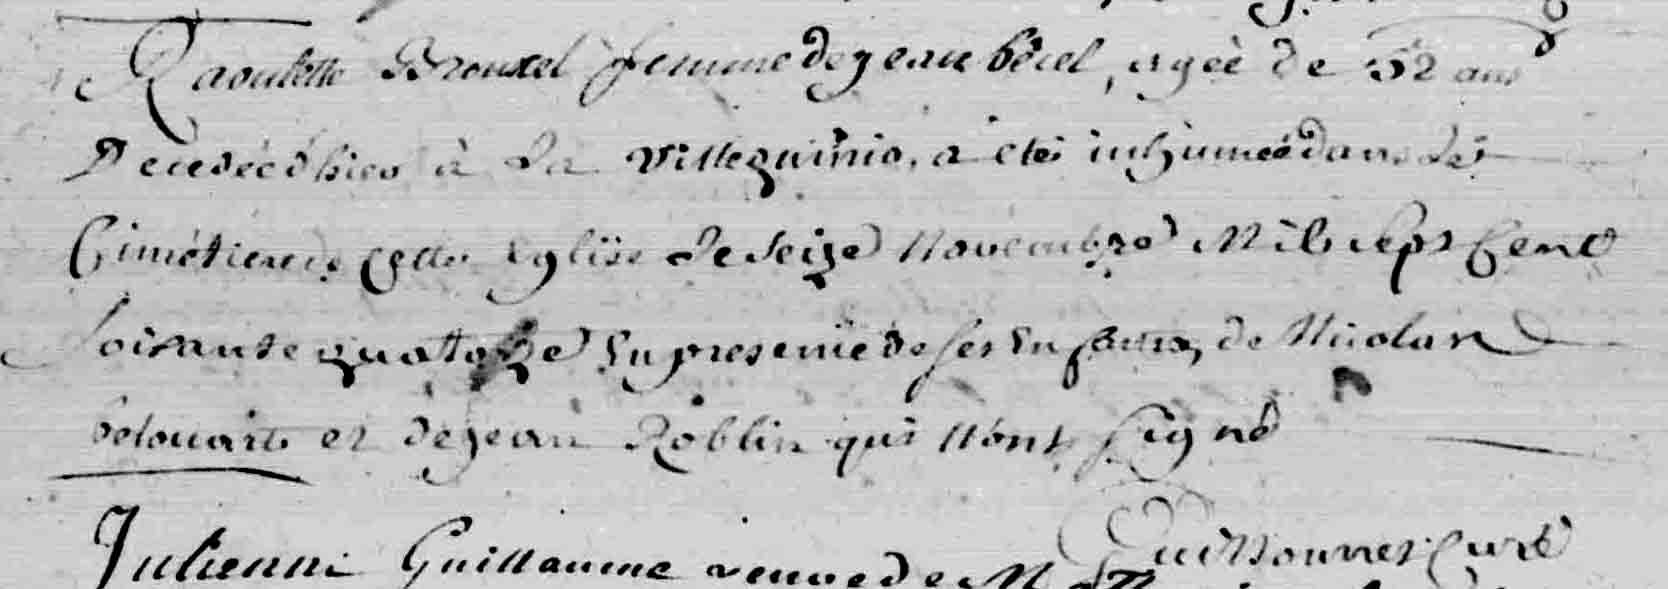 Raoulette Brouxel femme de jean bécel, agée de 52 ans
Decedée d'hier à La villeguinio, a eté inhumée dans Le
Cimétiere de cette Eglise Le seize Novembre Mil sept Cent
soixante quatorze En presence de ses Enfants, de Nicolas
belouart et de jean Roblin qui n'ont signé
Curé
Julienne Guillaume veuve de